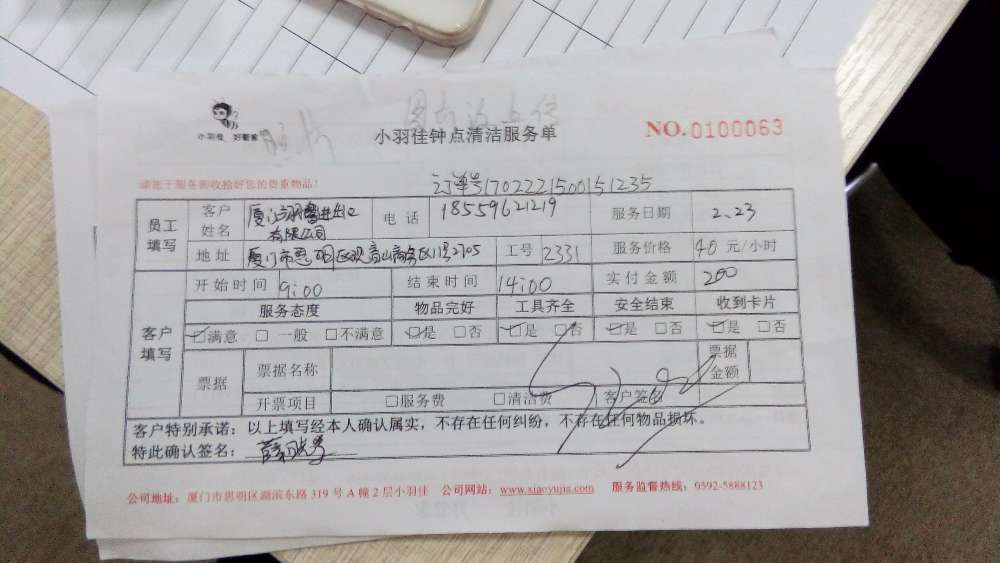 小羽佳 好管家
小羽佳钟点清洁服务单
NO.0100063
请您于服务前收捡好您的贵重物品!
订单号1702221500151235
员工填写 客户姓名 厦门 有限公司 电话 18559621219 服务日期 2.23
地址 厦门市思明区观音山商务区11号2705 工号 2331 服务价格 40 元/小时
客户填写 开始时间 9:00 结束时间 14:00 实付金额 200
服务态度 物品完好 工具齐全 安全结束 收到卡片
☑满意 □一般 □不满意 ☑是 □否 ☑是 □否 ☑是 □否 ☑是 □否
票据 票据名称 票据金额
开票项目 □服务费 □清洁费 客户签名
客户特别承诺:以上填写经本人确认属实,不存在任何纠纷,不存在任何物品损坏。
特此确认签名:
公司地址:厦门市思明区湖滨东路 319 号 A 幢 2 层小羽佳 公司网站:www.xiaoyujia.com 服务监督热线:0592-5888123